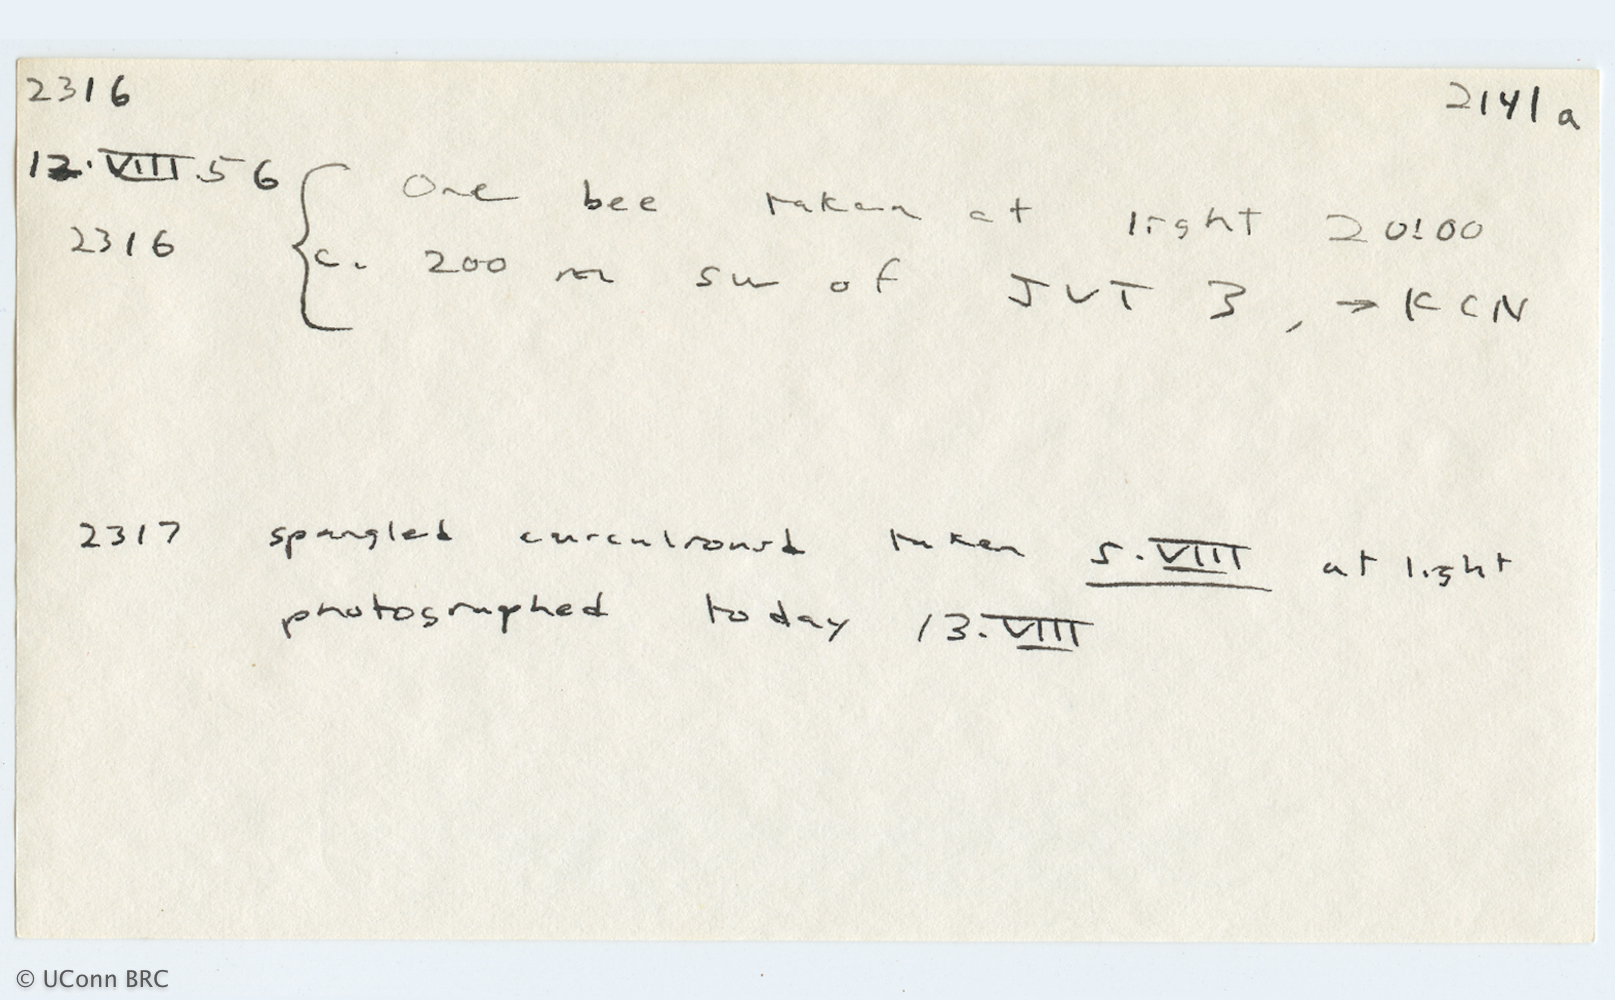 2316
2141a
12.VIII.56 One bee taken at light 20:00
2316 c. 200 m SW of JVT 3, → KCN
2317 spangled curculionid taken 5.VIII at light
photographed today 13.VIII
© UConn BRC